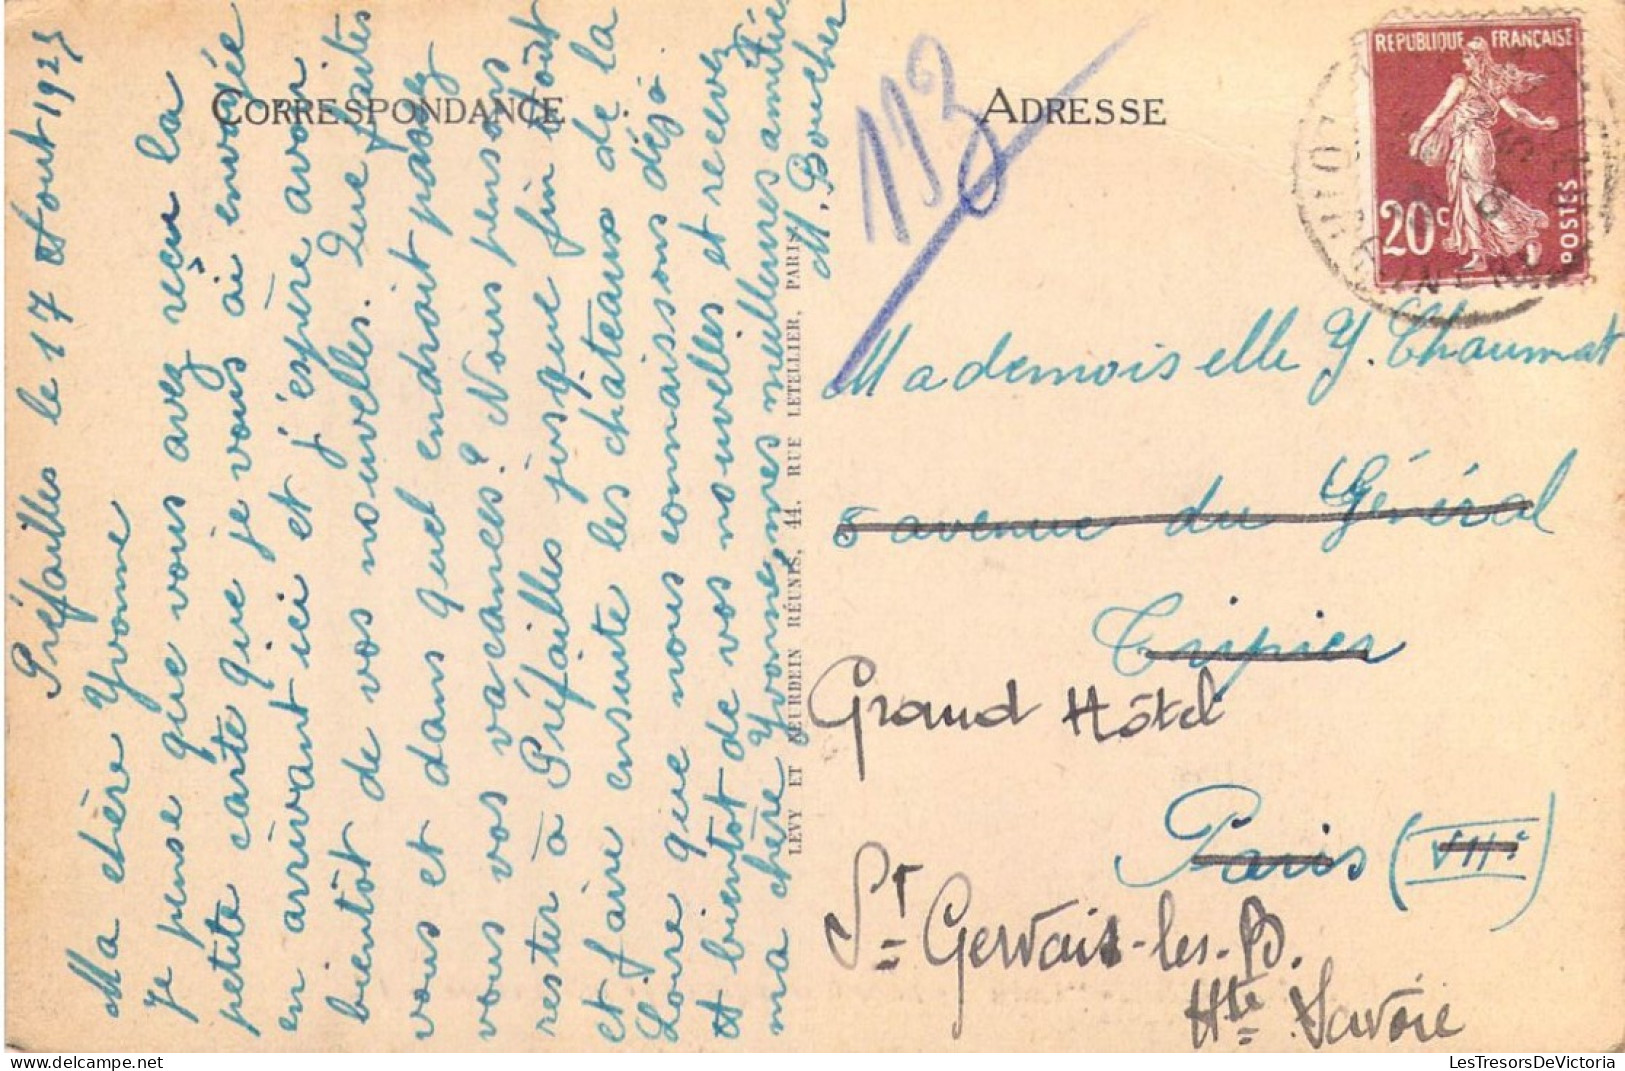 CORRESPONDANCE
Préfailles le 17 Aout 1925
Ma chère Yvonne
Je pense que vous avez reçu la
petite carte que je vous ai envoyée
en arrivant ici et j'espère avoir
bientôt de vos nouvelles. Que faites
vous et dans quel endroit passez
vous vos vacances? Nous pensons
rester à Préfailles jusque fin Août
et faire ensuite les châteaux de la
Loire que nous connaissons déjà.
A bientôt de vos nouvelles et recevez
ma chère Yvonne mes meilleures amitiés
M. Boucher
LEVY ET NEURDEIN RÉUNIS, 44, RUE LETELLIER, PARIS
113
ADRESSE
REPUBLIQUE FRANÇAISE
20c
POSTES
Mademoiselle Y. Chaumat
5 avenue du Général
Tripier
Grand Hôtel
Paris (VIIe)
St Gervais-les-B.
Hte Savoie
LesTresorsDeVictoria